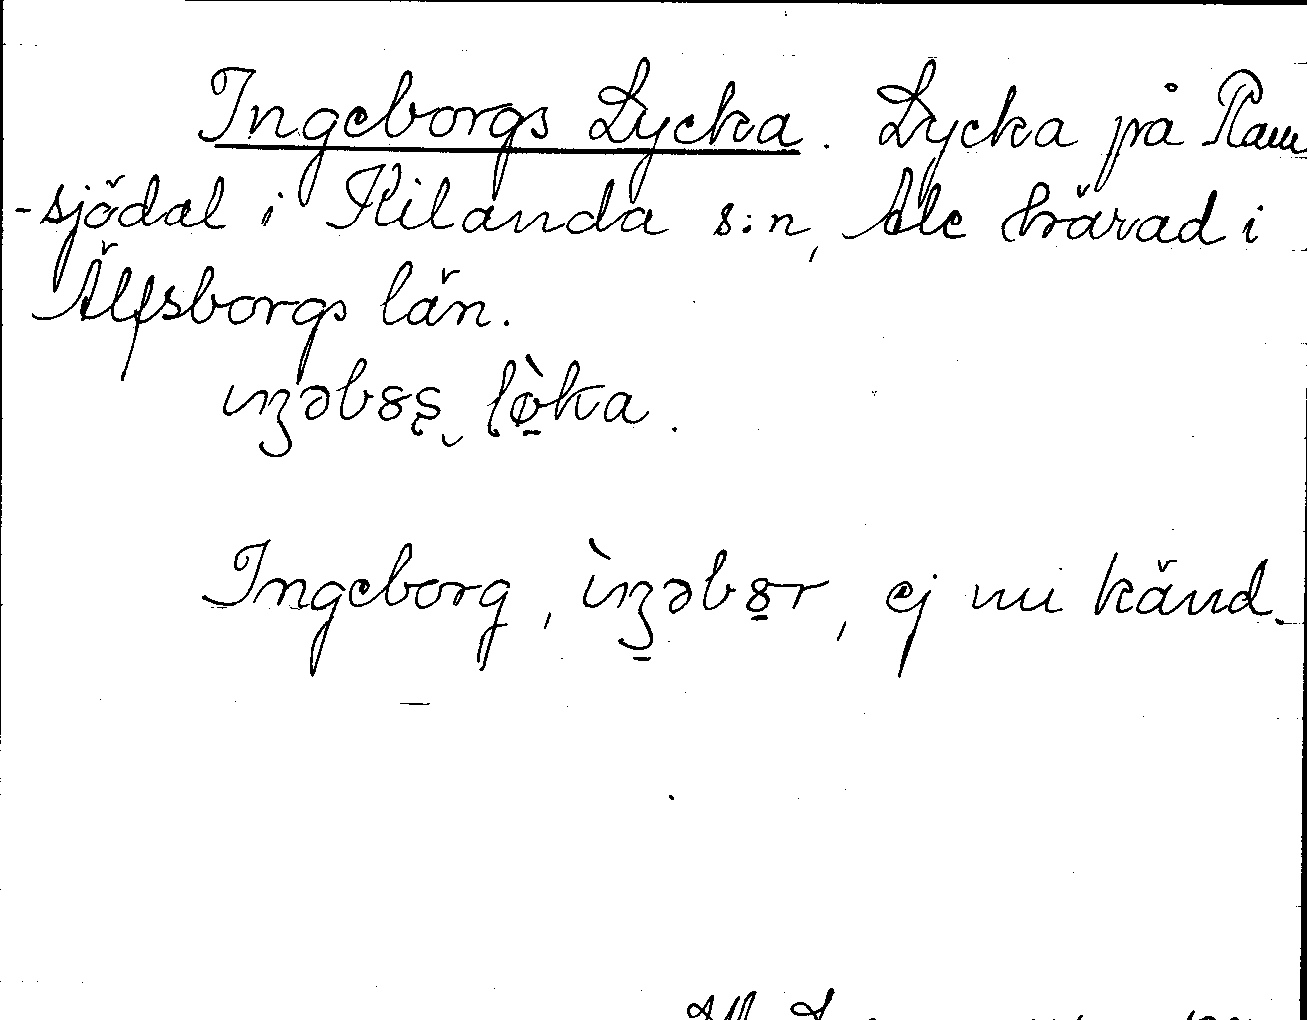 Ingeborgs Lycka. Lycka på Ram
-sjödal i Kilanda s:n, Ale härad i
Älfsborgs län.
ıŋəbȣʂ‿ lø̠̀ka.
Ingeborg, ı̀ŋ̠əbȣ̠r, ej nu känd.